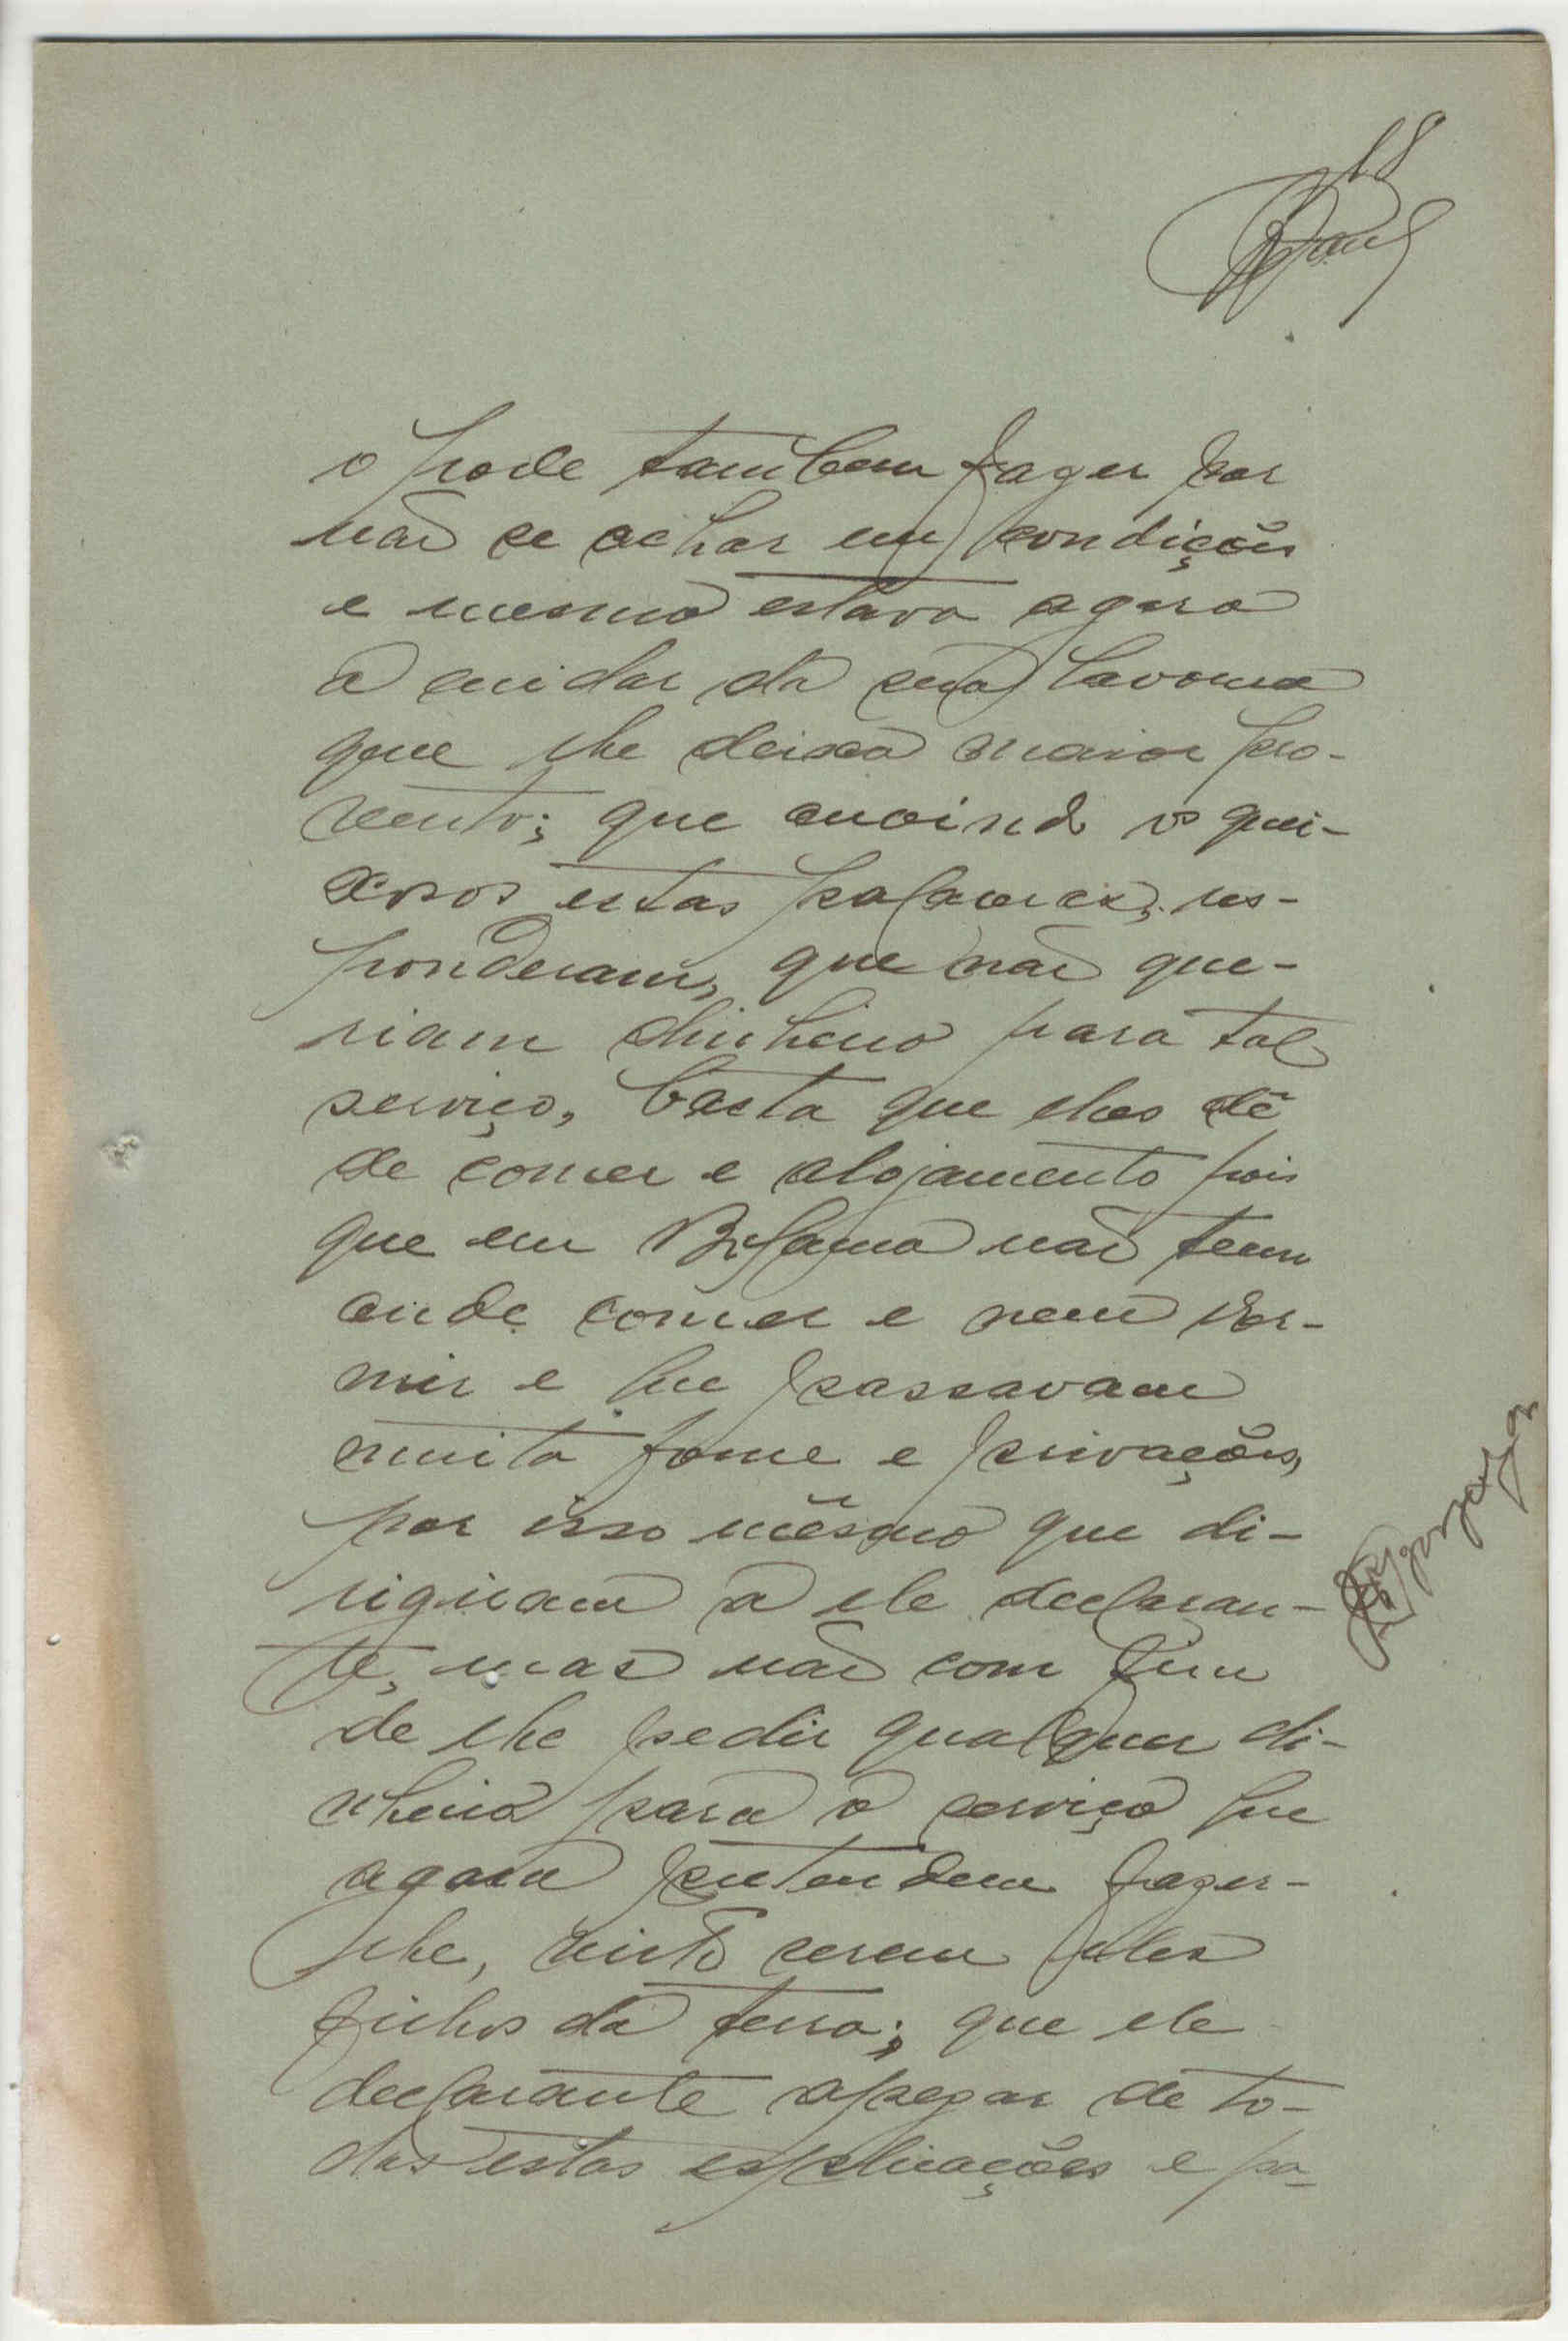 18
o pode tambem fazer por
não se achar em condições
e mesmo estava agora
a cuidar da sua lavoura
que lhe deixa maior pro-
vento; que ouvindo os quei-
xosos estas palavras, res-
ponderam, que não que-
riam dinheiro para tal
serviço, basta que elas dê
de comer e alojamento pois
que em Bolama não tem
onde comer e nem dor-
mir e que passavam
muita fome e privações,
por isso mêsmo que di-
rigiram a ele declaran-
te, mas não com fim
de lhe pedir qualquer di-
nheiro para o serviço que
agora pretendem fazer-
lhe, visto serem eles
filhos da terra; que ele
declarante apezar de to-
das estas explicações e pa-